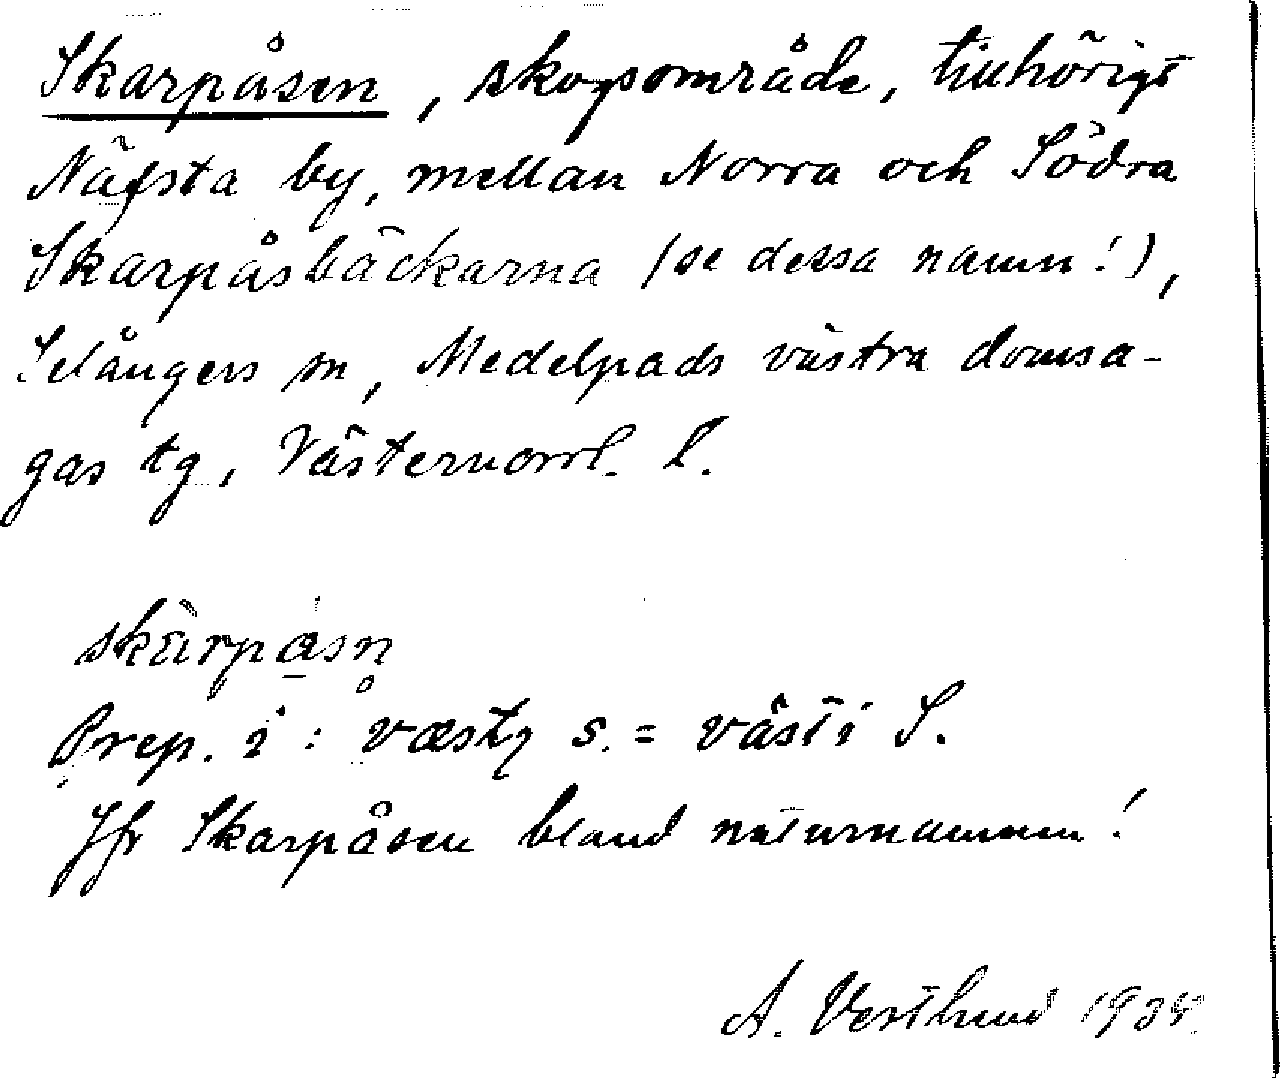 Skarpåsen, skogsområde, tillhörigt
Näfsta by, mellan Norra och Södra
Skarpåsbäckarna (se dessa namn!),
Selångers sn, Medelpads västra domsa-
gas tg, Västernorrl. l.
Prep. i : væsty s. = väst i S.
Jfr Skarpåsen bland naturnamnen!
A. Vestlund